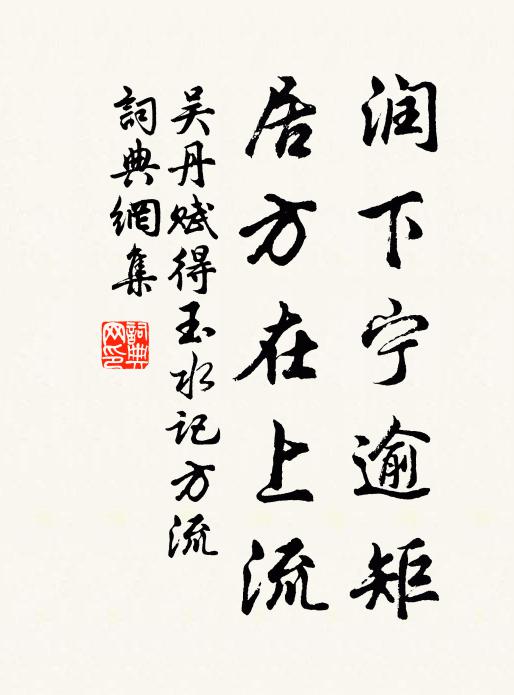 润下宁逾矩
居方在上流
吴丹赋得玉水记方流
詞典網集
詞典网印